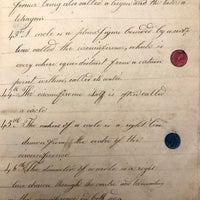 former being also called a
43rd A circle is a plane figure bounded by
line called the circumference which is
every where equi distant from a certain
point within called its centre
44th The circumference itself is often called
a circle
45th The radius of a circle is a right line
drawn from the centre of the
circumference
46th The diameter of a circle is a right
line drawn through the centre and
the